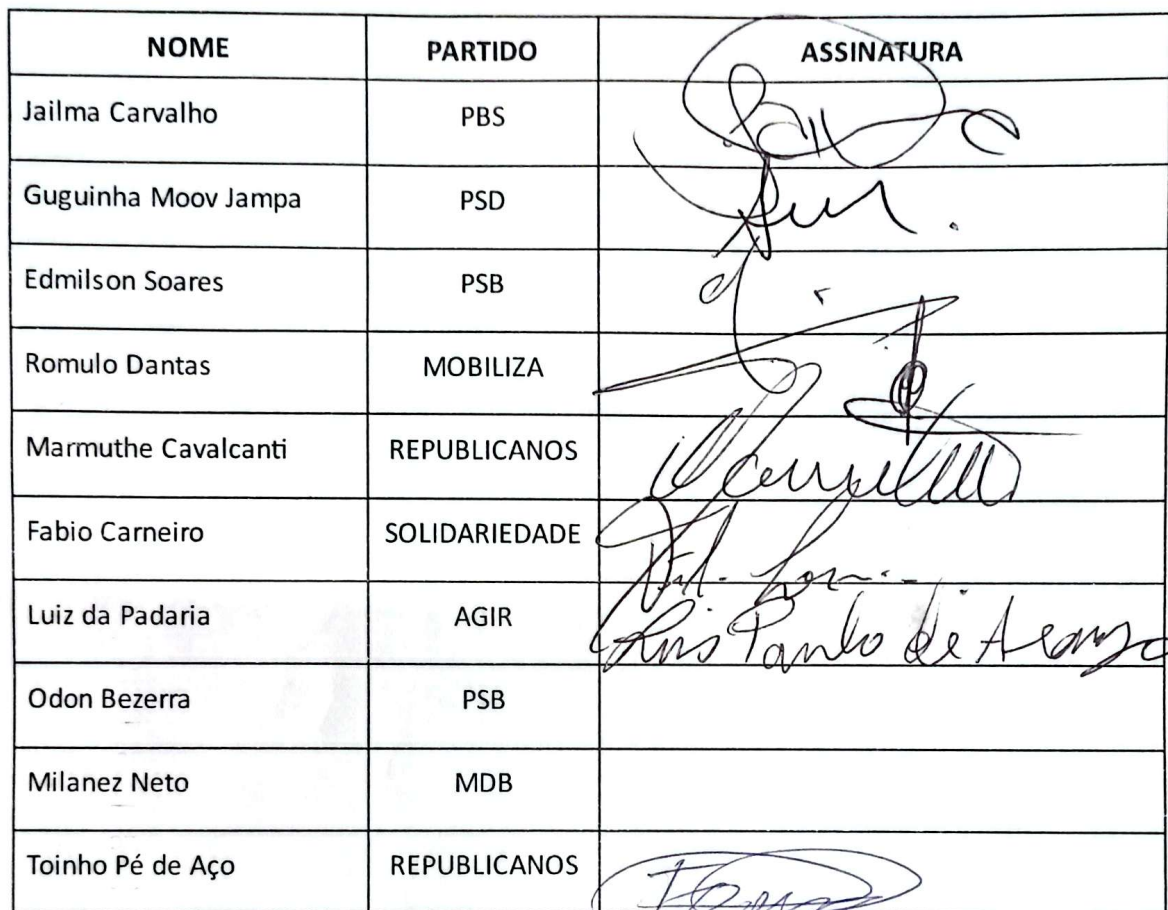 NOME PARTIDO ASSINATURA
Jailma Carvalho PBS
Guguinha Moov Jampa PSD
Edmilson Soares PSB
Romulo Dantas MOBILIZA
Marmuthe Cavalcanti REPUBLICANOS
Fabio Carneiro SOLIDARIEDADE
Luiz da Padaria AGIR
Odon Bezerra PSB
Milanez Neto MDB
Toinho Pé de Aço REPUBLICANOS